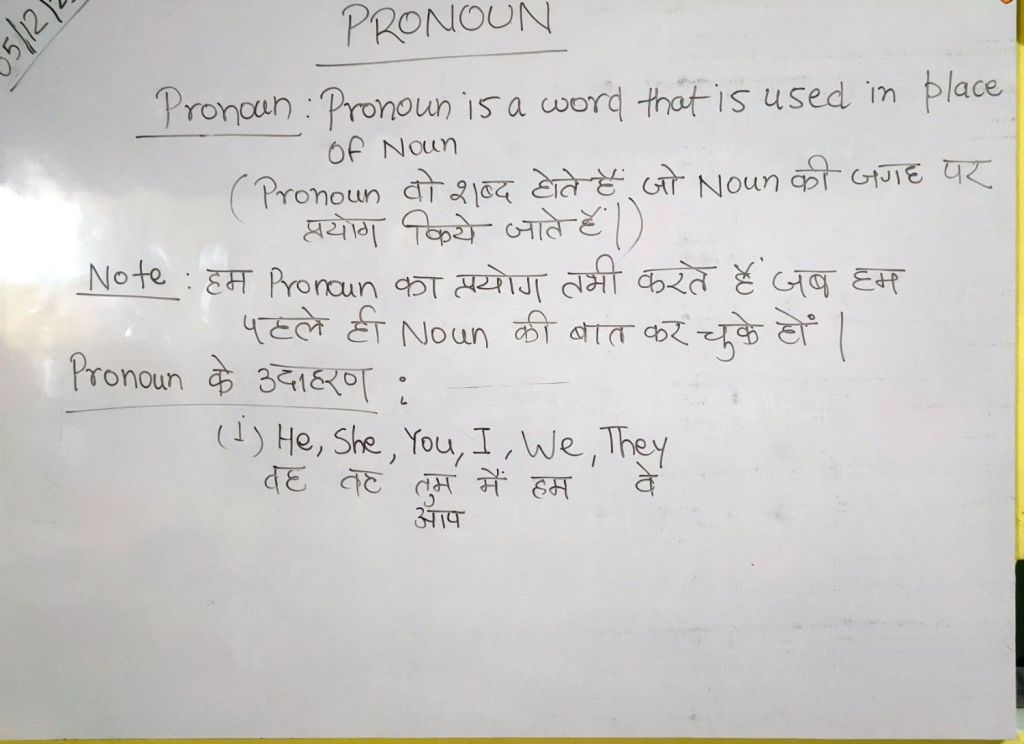 05/12/2
PRONOUN
Pronoun : Pronoun is a word that is used in place
of Noun
(Pronoun वो शब्द होते हैं जो Noun की जगह पर
प्रयोग किये जाते हैं।)
Note : हम Pronoun का प्रयोग तभी करते हैं जब हम
पहले ही Noun की बात कर चुके हों।
Pronoun के उदाहरण :
(i) He, She, You, I, We, They
वह वह तुम मैं हम वे
आप